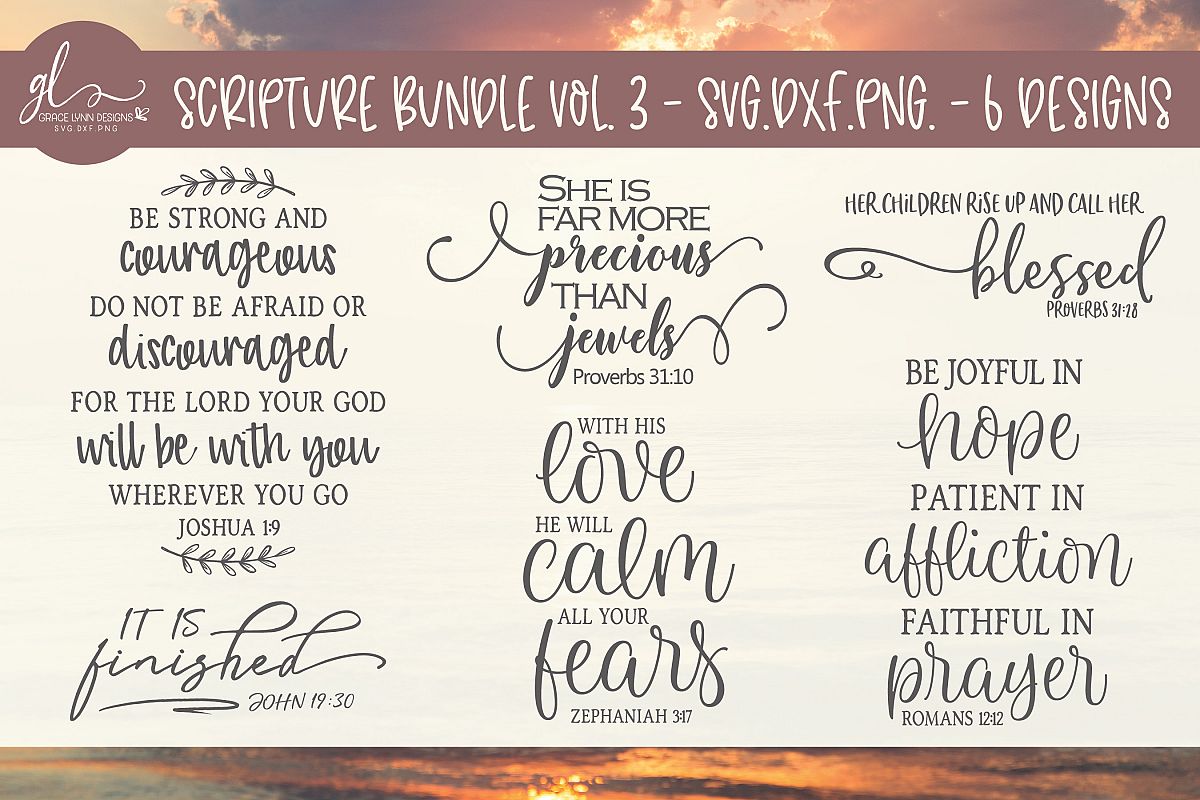 gl
GRACE LYNN DESIGNS
SVG.DXF.PNG
SCRIPTURE BUNDLE VOL. 3 - SVG.DXF.PNG. - 6 DESIGNS
BE STRONG AND
courageous
DO NOT BE AFRAID OR
discouraged
FOR THE LORD YOUR GOD
will be with you
WHEREVER YOU GO
JOSHUA 1:9
IT IS
finished
JOHN 19:30
SHE IS
FAR MORE
precious
THAN
jewels
Proverbs 31:10
WITH HIS
love
HE WILL
calm
ALL YOUR
fears
ZEPHANIAH 3:17
HER CHILDREN RISE UP AND CALL HER
blessed
PROVERBS 31:28
BE JOYFUL IN
hope
PATIENT IN
affliction
FAITHFUL IN
prayer
ROMANS 12:12